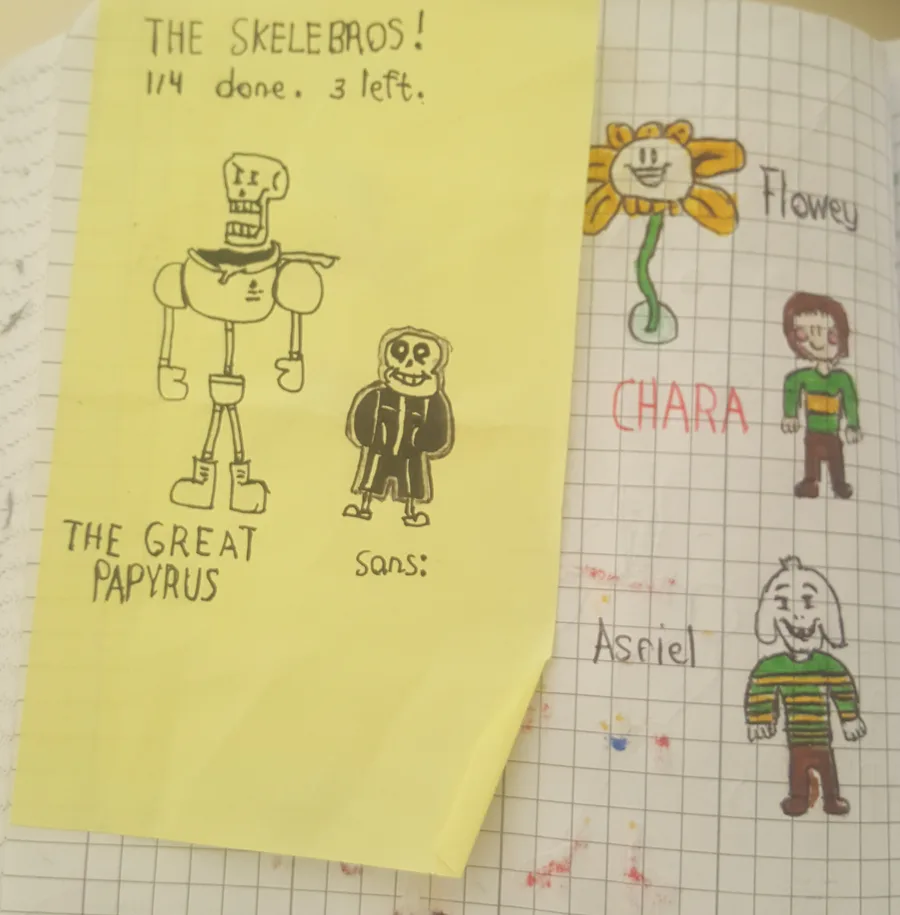 THE SKELEBROS!
1/4 done. 3 left.
THE GREAT
PAPYRUS
sans:
Flowey
CHARA
Asriel